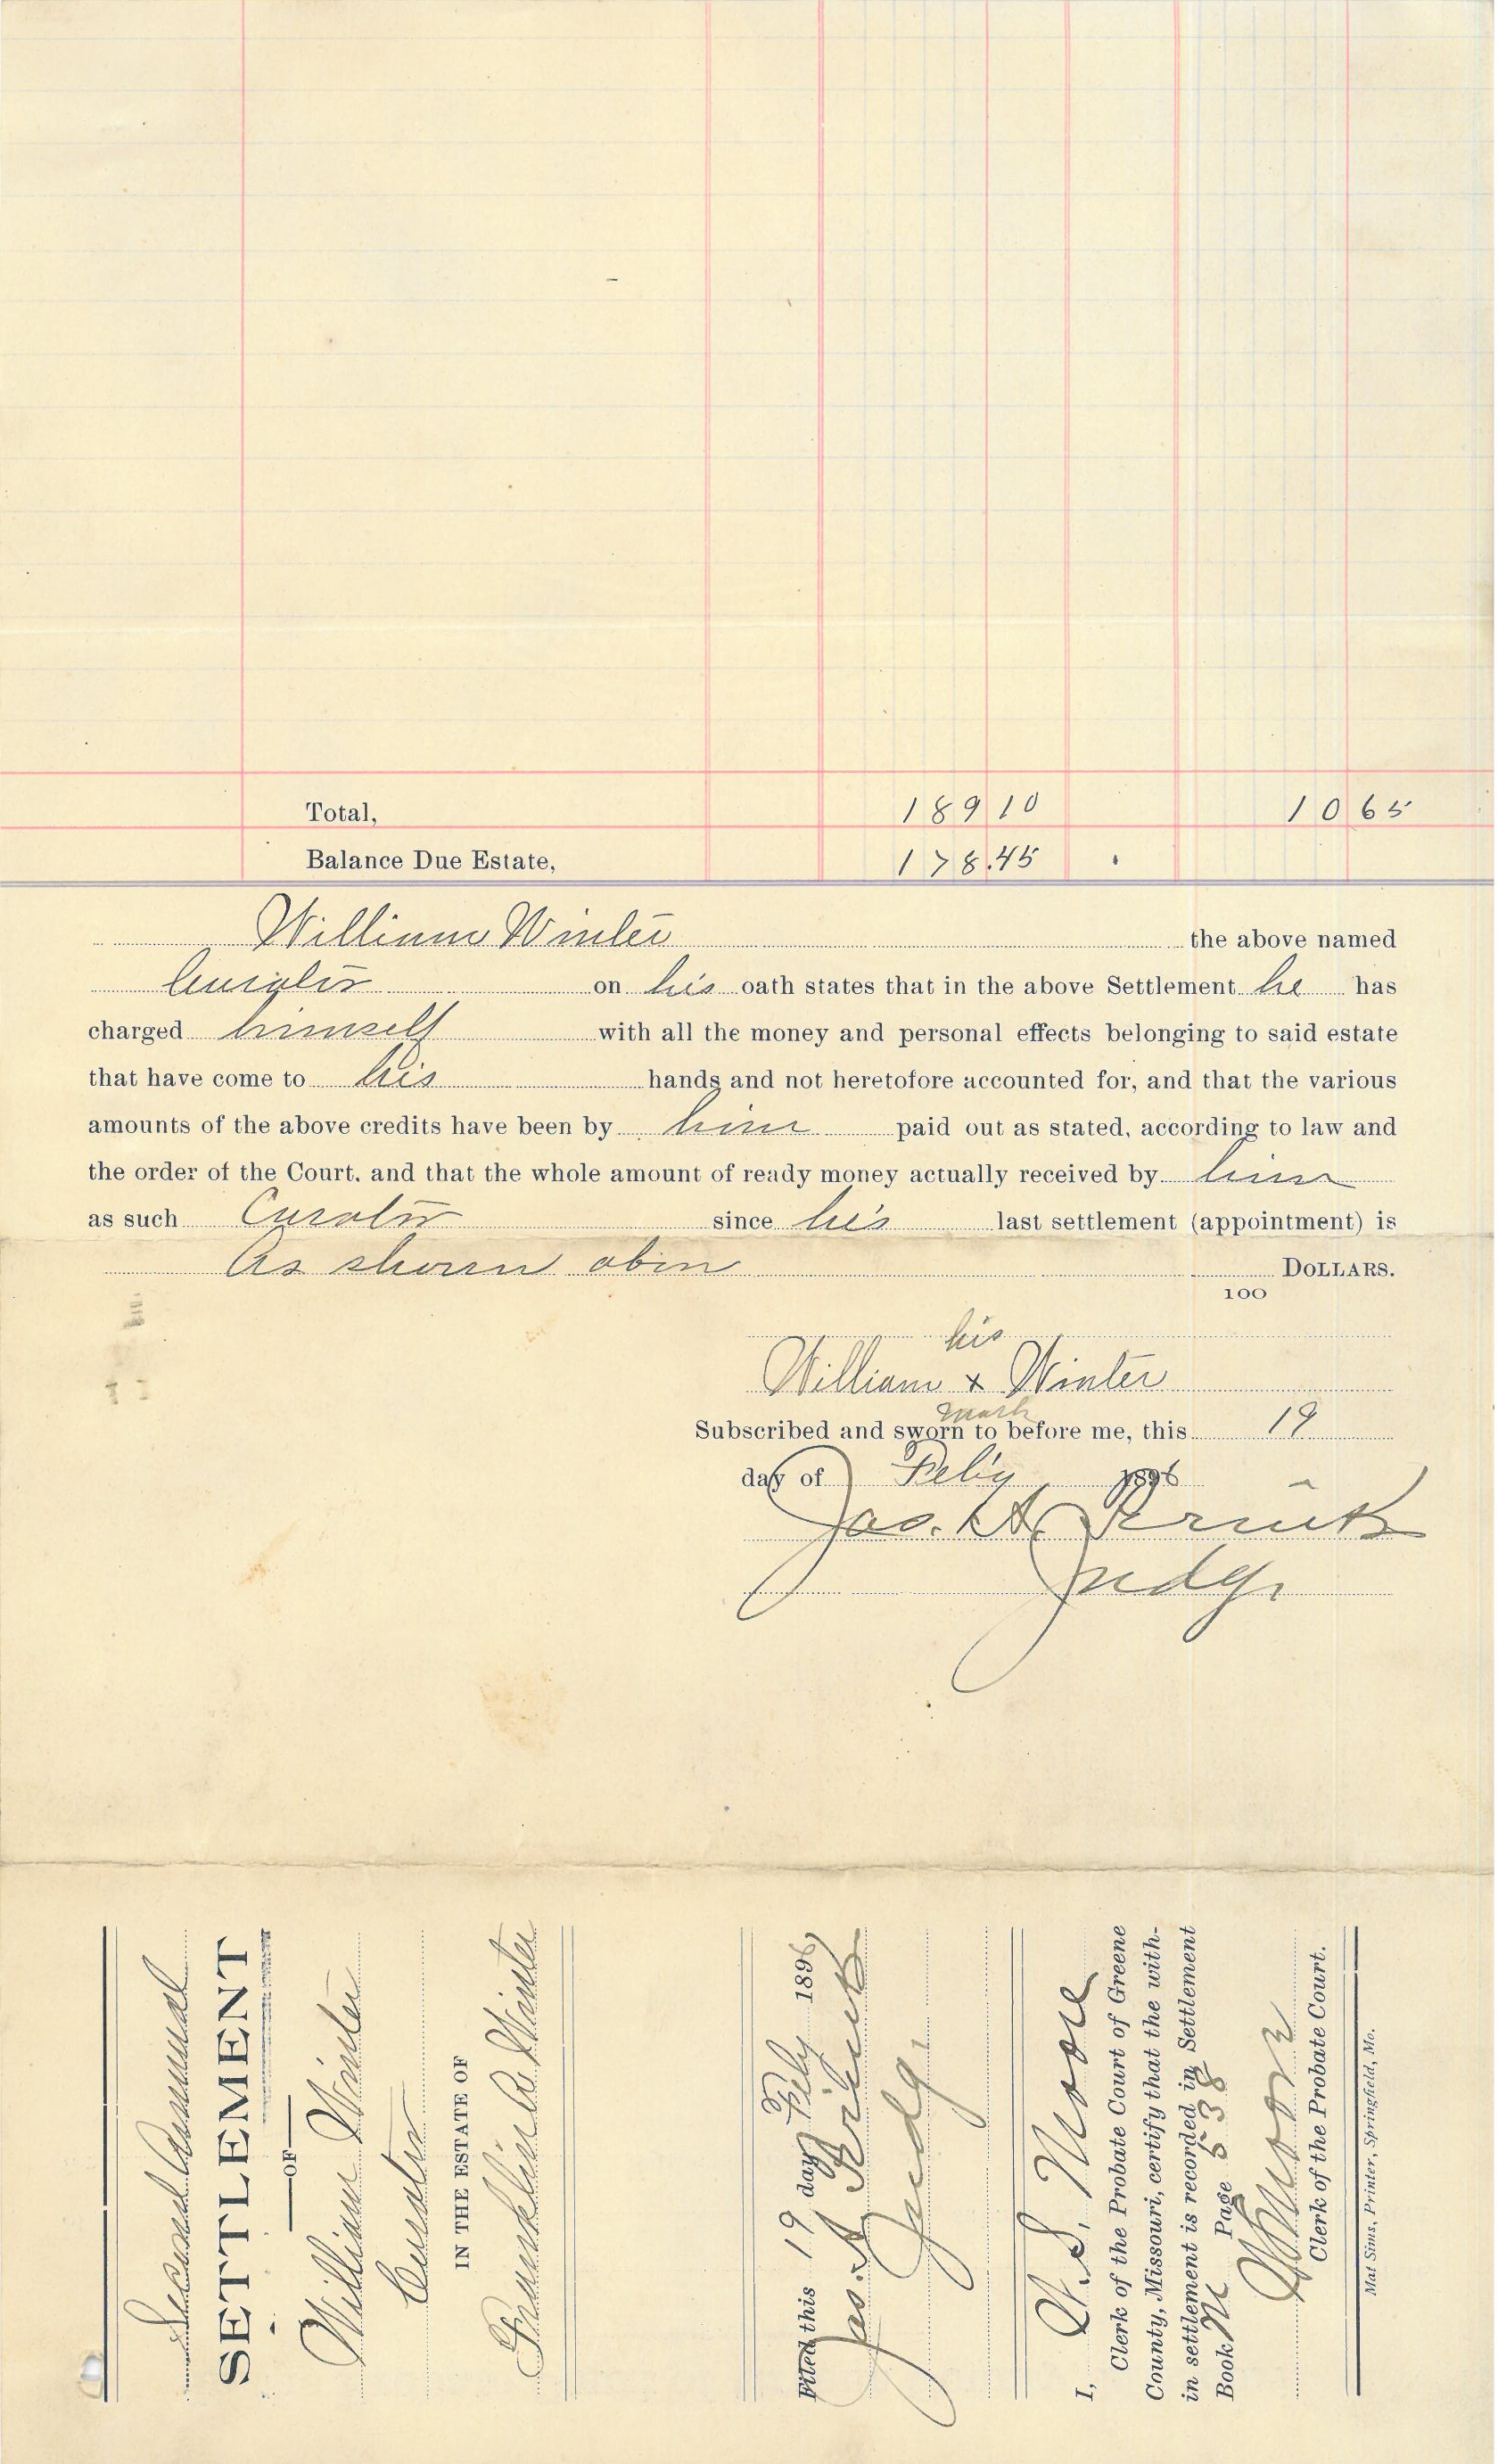 Total, 189 10 10 65
Balance Due Estate, 178.45
William Winter the above named
Curator on his oath states that in the above Settlement he has
charged himself with all the money and personal effects belonging to said estate
that have come to his hands and not heretofore accounted for, and that the various
amounts of the above credits have been by him paid out as stated, according to law and
the order of the Court, and that the whole amount of ready money actually received by him
as such Curator since his last settlement (appointment) is
As shown abov DOLLARS.
100
his
William x Winter
mark
Subscribed and sworn to before me, this 19
day of Feby 1896
Jas. A.
Judge
Second Annual
SETTLEMENT
OF
William Winter
Curator
IN THE ESTATE OF
Franklin A Winter
Filed this 19 day Feby 1896
Jas. A
Judge
I, W. S. Moore
Clerk of the Probate Court of Greene
County, Missouri, certify that the with-
in settlement is recorded in Settlement
Book M Page 538
WS Moore
Clerk of the Probate Court.
Mat Sims, Printer, Springfield, Mo.